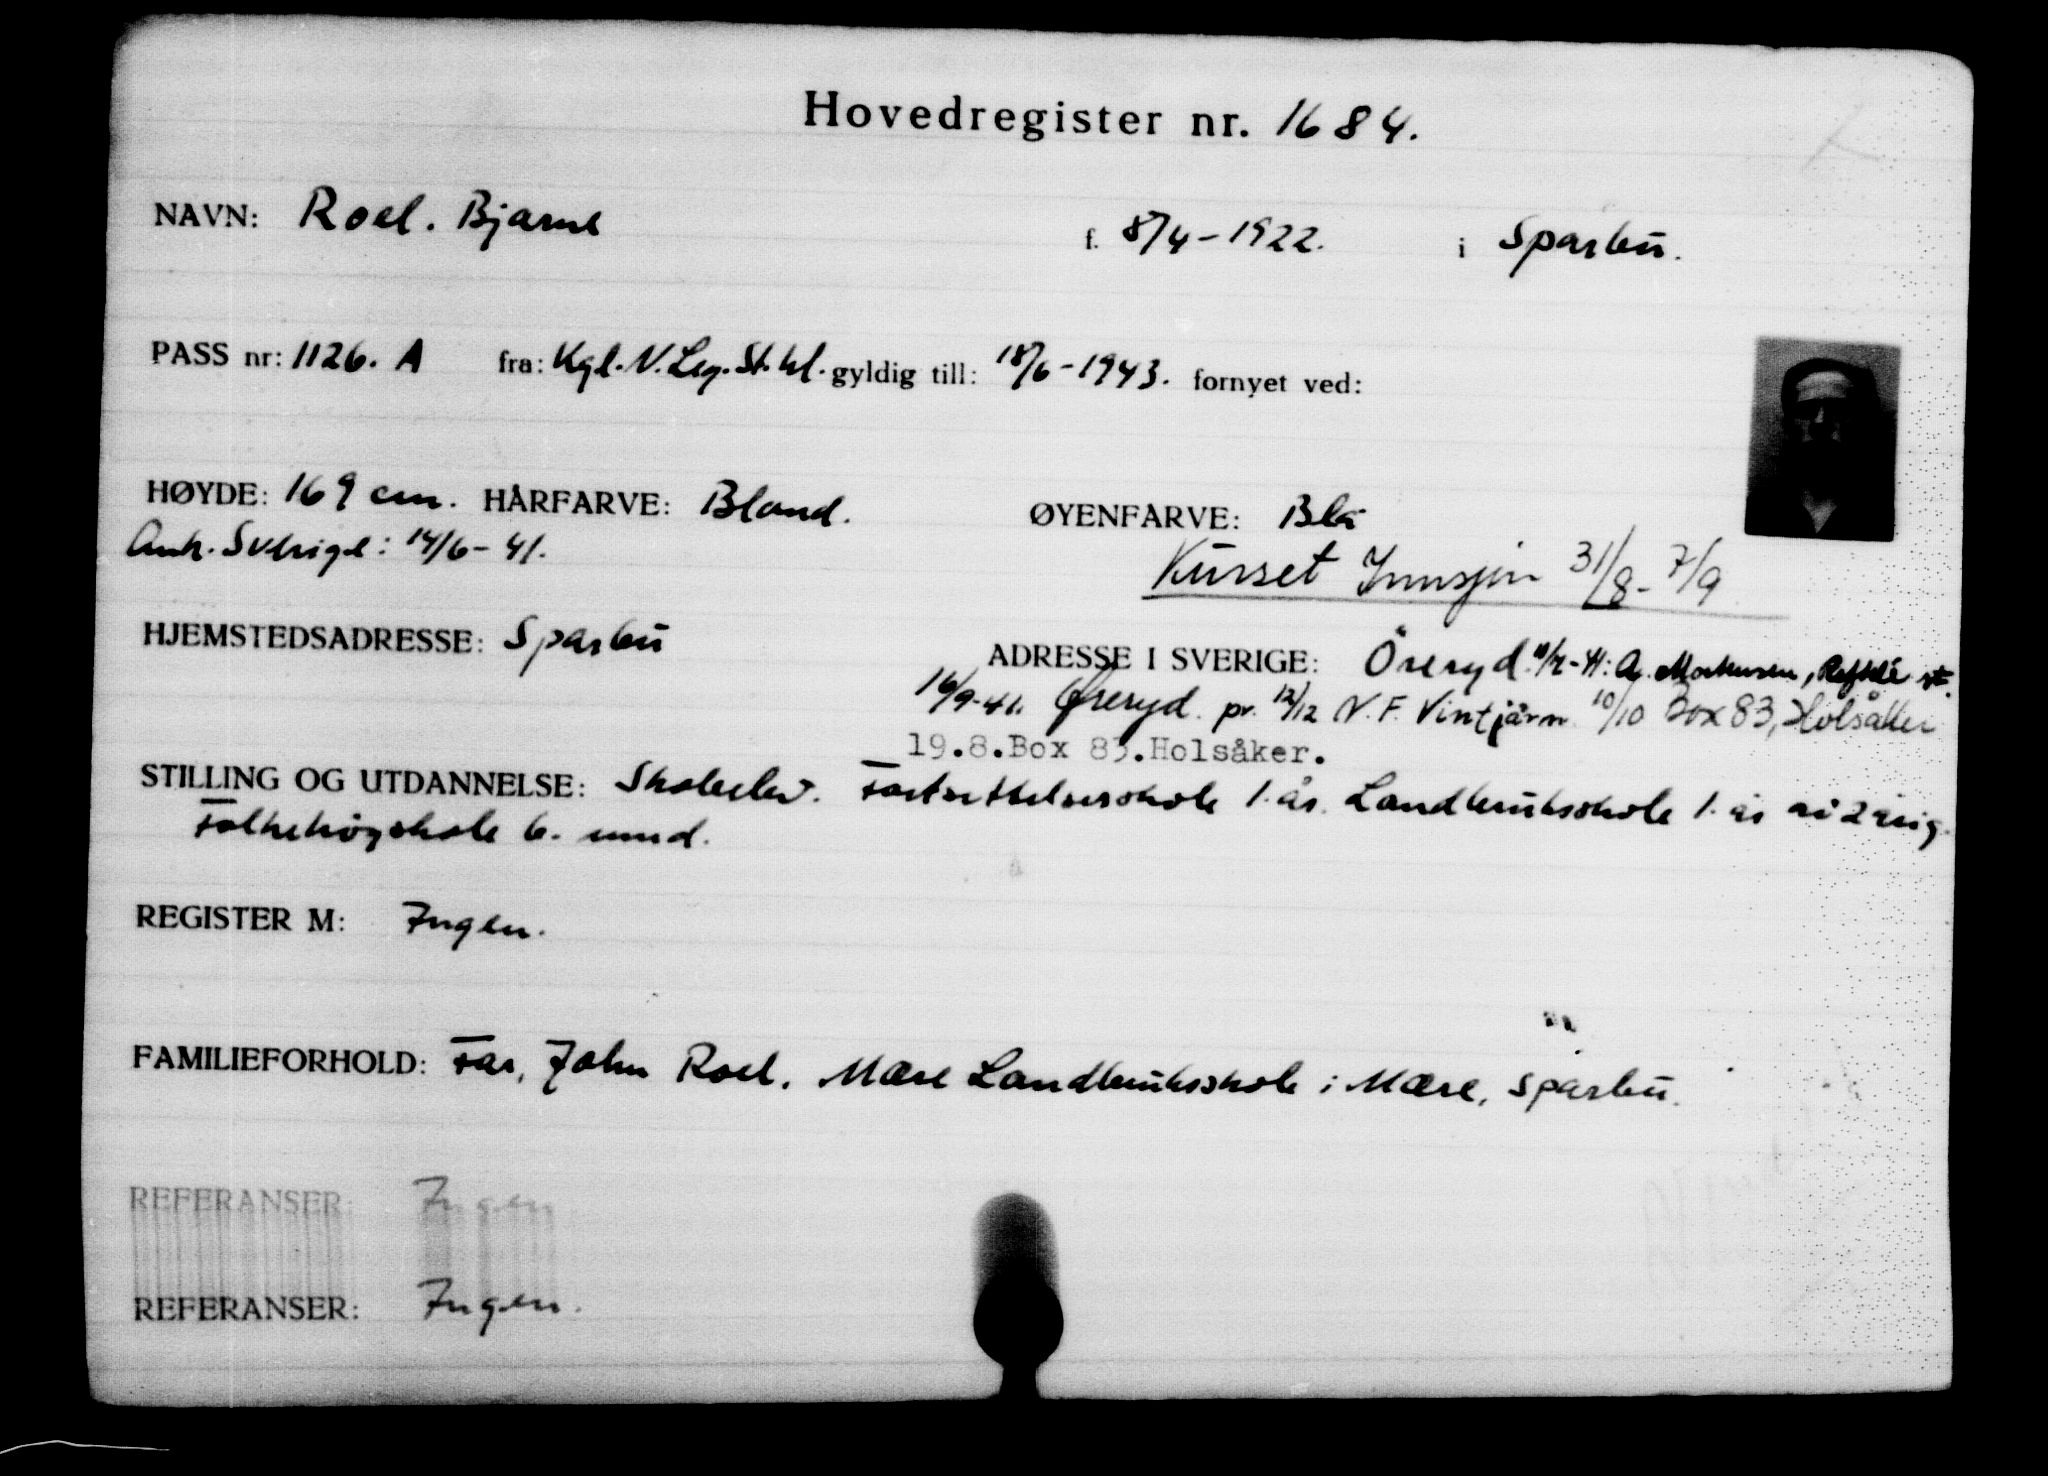 Hovedregister nr. 1684.
NAVN: Roel. Bjarne f. 8/4-1922. i Sparbu.
PASS nr: 1126. A fra: Kgl. N. Leg. St.hl. gyldig till: 18/6-1943. fornyet ved:
HØYDE: 169 cm. HÅRFARVE: Blond. ØYENFARVE: Blå
Ank. Sverige: 14/6-41. Kurset 31/8-7/9
HJEMSTEDSADRESSE: Sparbu ADRESSE I SVERIGE: Öreryd. st.
16/9-41. Øreryd. pr. 12/12 N.F. Vintjärn. 10/10 Box 83, Holsåker
19.8.Box 83.Holsåker.
STILLING OG UTDANNELSE: Skoleelev. Fortsettelsesskole 1. år. Landbruksskole 1. år av 2 årig.
Folkehögskole 6. mnd.
REGISTER M: Ingen.
FAMILIEFORHOLD: Far, John Roel. Mære Landbruksskole i Mære, Sparbu.
REFERANSER: Ingen
REFERANSER: Ingen.